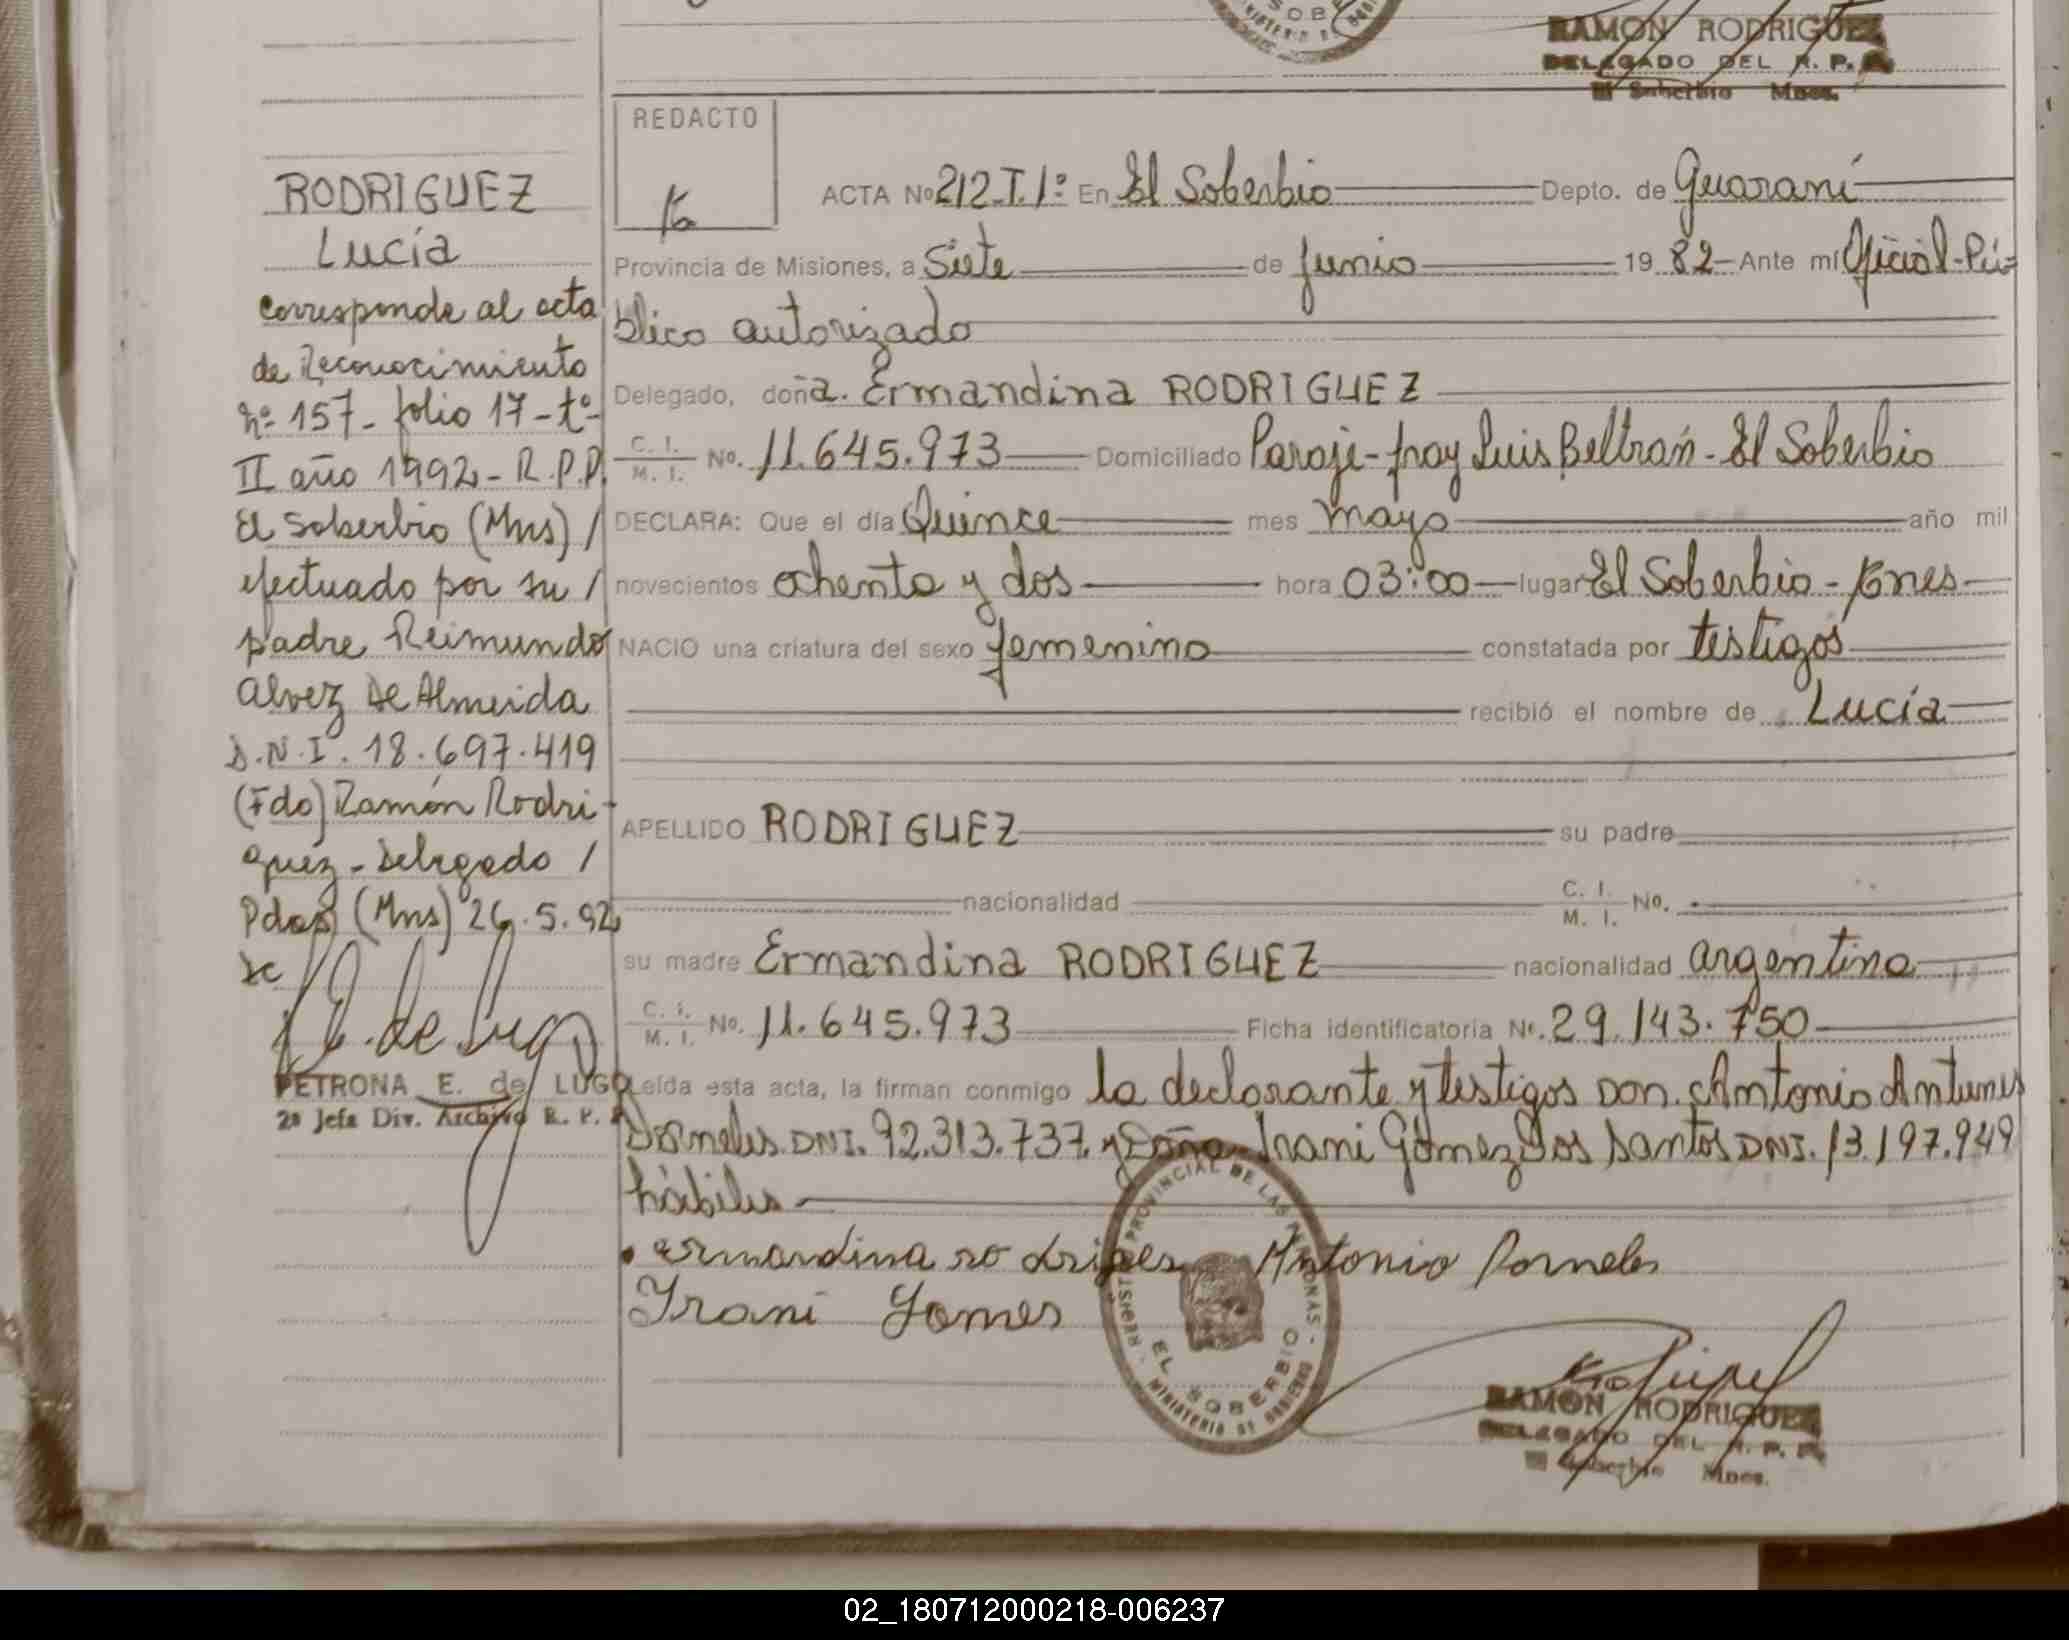 SOBE
RAMON RODRIGUEZ
DELEGADO DEL R. P. P.
El Soberbio Mnes.
RODRIGUEZ
Lucía
corresponde al acta
de Reconocimiento
nº 157 - folio 17 - tº-
II año 1992 - R.P.P.
El Soberbio (Mns) /
efectuado por su /
padre Reimundo
Alvez De Almeida
D.N.I. 18.697.419
(Fdo) Ramón Rodri-
guez - Delegado /
Pdas (Mns) 26.5.92
PETRONA E. de LUGO
2ª Jefa Div. Archivo R. P. P.
REDACTO
ACTA Nº 212.T.1º En El Soberbio Depto. de Guaraní
Provincia de Misiones, a Siete de Junio 19 82 Ante mí Oficial-Pú-
blico autorizado
Delegado, doña. Ermandina RODRIGUEZ
C. I. / M. I. No. 11.645.973 Domiciliado Paraje-fray Luis Beltrán - El Soberbio
DECLARA: Que el día Quince mes mayo año mil
novecientos ochenta y dos hora 03:00 lugar El Soberbio - Mnes
NACIO una criatura del sexo femenino constatada por testigos
recibió el nombre de Lucía
APELLIDO RODRIGUEZ su padre
nacionalidad C. I. / M. I. No.
su madre Ermandina RODRIGUEZ nacionalidad argentina
C. I. / M. I. No. 11.645.973 Ficha identificatoria Nº. 29.143.750
Leída esta acta, la firman conmigo la declarante y testigos Don. Antonio Antunes
Dorneles DNI. 92.313.737. y Doña Irani Gómez Dos Santos DNI. 13.197.949
hábiles
ermandina rodrigez Antonio Dorneles
Irani Gomes
REGISTRO PROVINCIAL DE LAS PERSONAS
EL SOBERBIO
MINISTERIO DE GOBIERNO
RAMON RODRIGUEZ
DELEGADO DEL R. P. P.
El Soberbio Mnes.
02_180712000218-006237